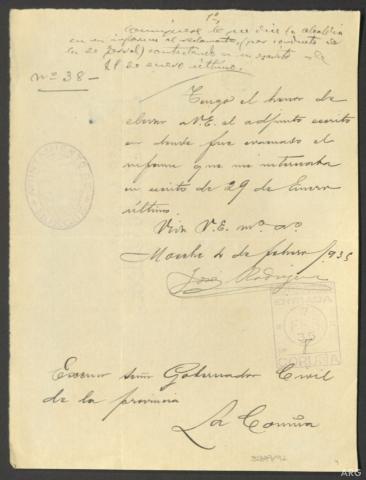 1º
Comuníquese lo que dice la alcaldía
en su informe al reclamante, (por conducto de
contestando a su escrito
21 de enero último.
nº 38 —
Tengo el honor de
elevar a V.E. el adjunto escrito
en donde fue evacuado el
informe que me interesaba
en escrito de 29 de Enero
último.
Viva V.E. m.ª a.ª
Moeche 4 de febrero 1935
José Rodríguez
ENTRADA
FEB
35
CORUÑA
Excmo señor Gobernador Civil
de la provincia
La Coruña
ARG